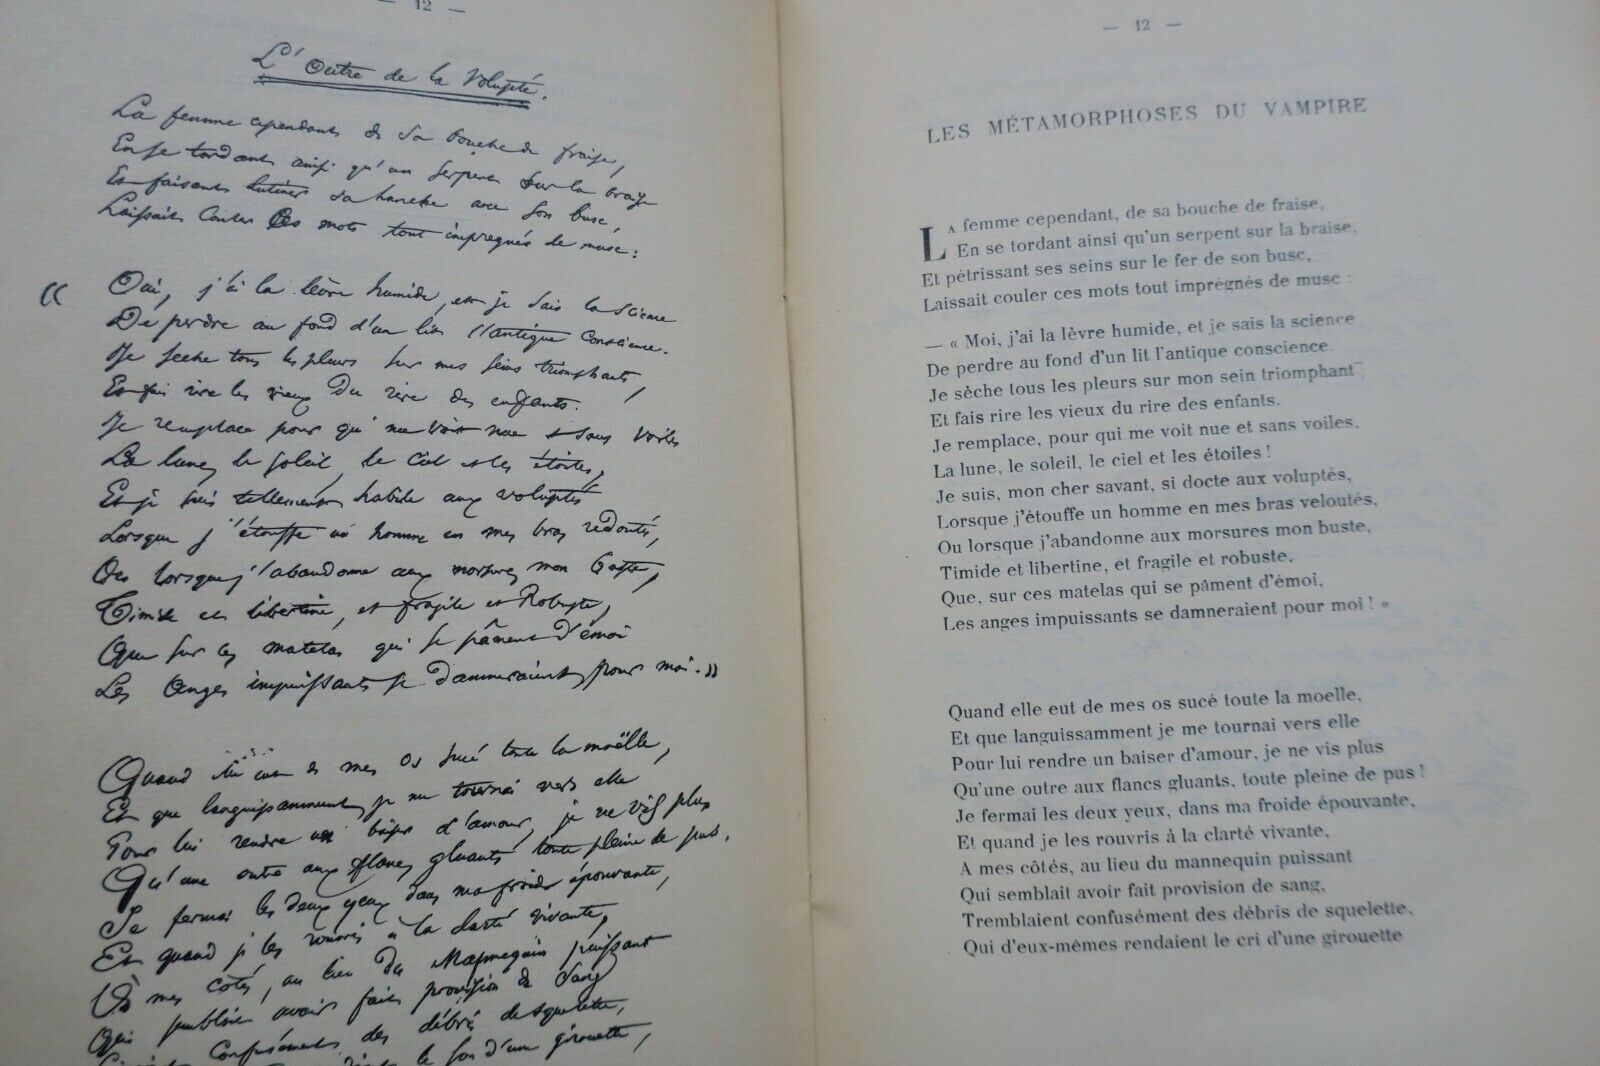 — 12 —
L'Outre de la Volupté.
La femme cependant de sa bouche de fraise,
En se tordant ainsi qu'un serpent sur la braise
Et faisant lutiner sa hanche avec son busc,
Laissait couler ces mots tout imprégnés de musc :
« Oui, j'ai la lèvre humide, et je sais la science
De perdre au fond d'un lit l'antique conscience.
Je sèche tous les pleurs sur mes seins triomphants,
Et fais rire les vieux du rire des enfants.
Je remplace pour qui me voit nue et sans voiles
La lune, le soleil, le ciel et les étoiles,
Et je suis tellement habile aux voluptés
Lorsque j'étouffe un homme en mes bras redoutés,
Ou lorsque j'abandonne aux morsures mon buste,
Timide et libertine, et fragile et Robuste,
Que sur ces matelas qui se pâment d'émoi
Les Anges impuissants se damneraient pour moi. »
Quand eut de mes os sucé toute la moëlle,
Et que languissamment je me tournai vers elle
Pour lui rendre un baiser d'amour, je ne vis plus
Qu'une outre aux flancs gluants toute pleine de pus.
Je fermai les deux yeux dans ma froide épouvante,
Et quand je les rouvris à la clarté vivante,
À mes côtés, au lieu du Mannequin puissant
Qui semblait avoir fait provision de Sang
confusément des débris de squelette,
le son d'une girouette,
— 12 —
LES MÉTAMORPHOSES DU VAMPIRE
LA femme cependant, de sa bouche de fraise,
En se tordant ainsi qu'un serpent sur la braise,
Et pétrissant ses seins sur le fer de son busc,
Laissait couler ces mots tout imprégnés de musc :
— « Moi, j'ai la lèvre humide, et je sais la science
De perdre au fond d'un lit l'antique conscience.
Je sèche tous les pleurs sur mon sein triomphant
Et fais rire les vieux du rire des enfants.
Je remplace, pour qui me voit nue et sans voiles,
La lune, le soleil, le ciel et les étoiles !
Je suis, mon cher savant, si docte aux voluptés,
Lorsque j'étouffe un homme en mes bras veloutés,
Ou lorsque j'abandonne aux morsures mon buste,
Timide et libertine, et fragile et robuste,
Que, sur ces matelas qui se pâment d'émoi,
Les anges impuissants se damneraient pour moi ! »
Quand elle eut de mes os sucé toute la moelle,
Et que languissamment je me tournai vers elle
Pour lui rendre un baiser d'amour, je ne vis plus
Qu'une outre aux flancs gluants, toute pleine de pus !
Je fermai les deux yeux, dans ma froide épouvante,
Et quand je les rouvris à la clarté vivante,
A mes côtés, au lieu du mannequin puissant
Qui semblait avoir fait provision de sang,
Tremblaient confusément des débris de squelette,
Qui d'eux-mêmes rendaient le cri d'une girouette